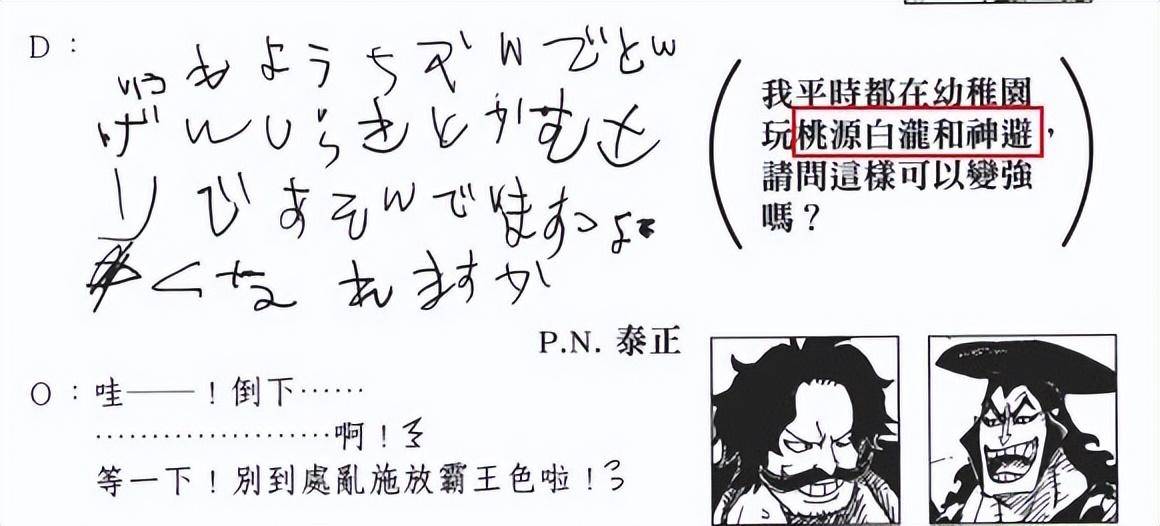 D：
いつもようちえんでとん
げんしらきとかむさ
りであそんでいますつよ
くなれますか
我平時都在幼稚園
玩桃源白瀧和神避，
請問這樣可以變強
嗎？
P.N. 泰正
O：哇——！倒下……
…………………啊！
等一下！別到處亂施放霸王色啦！